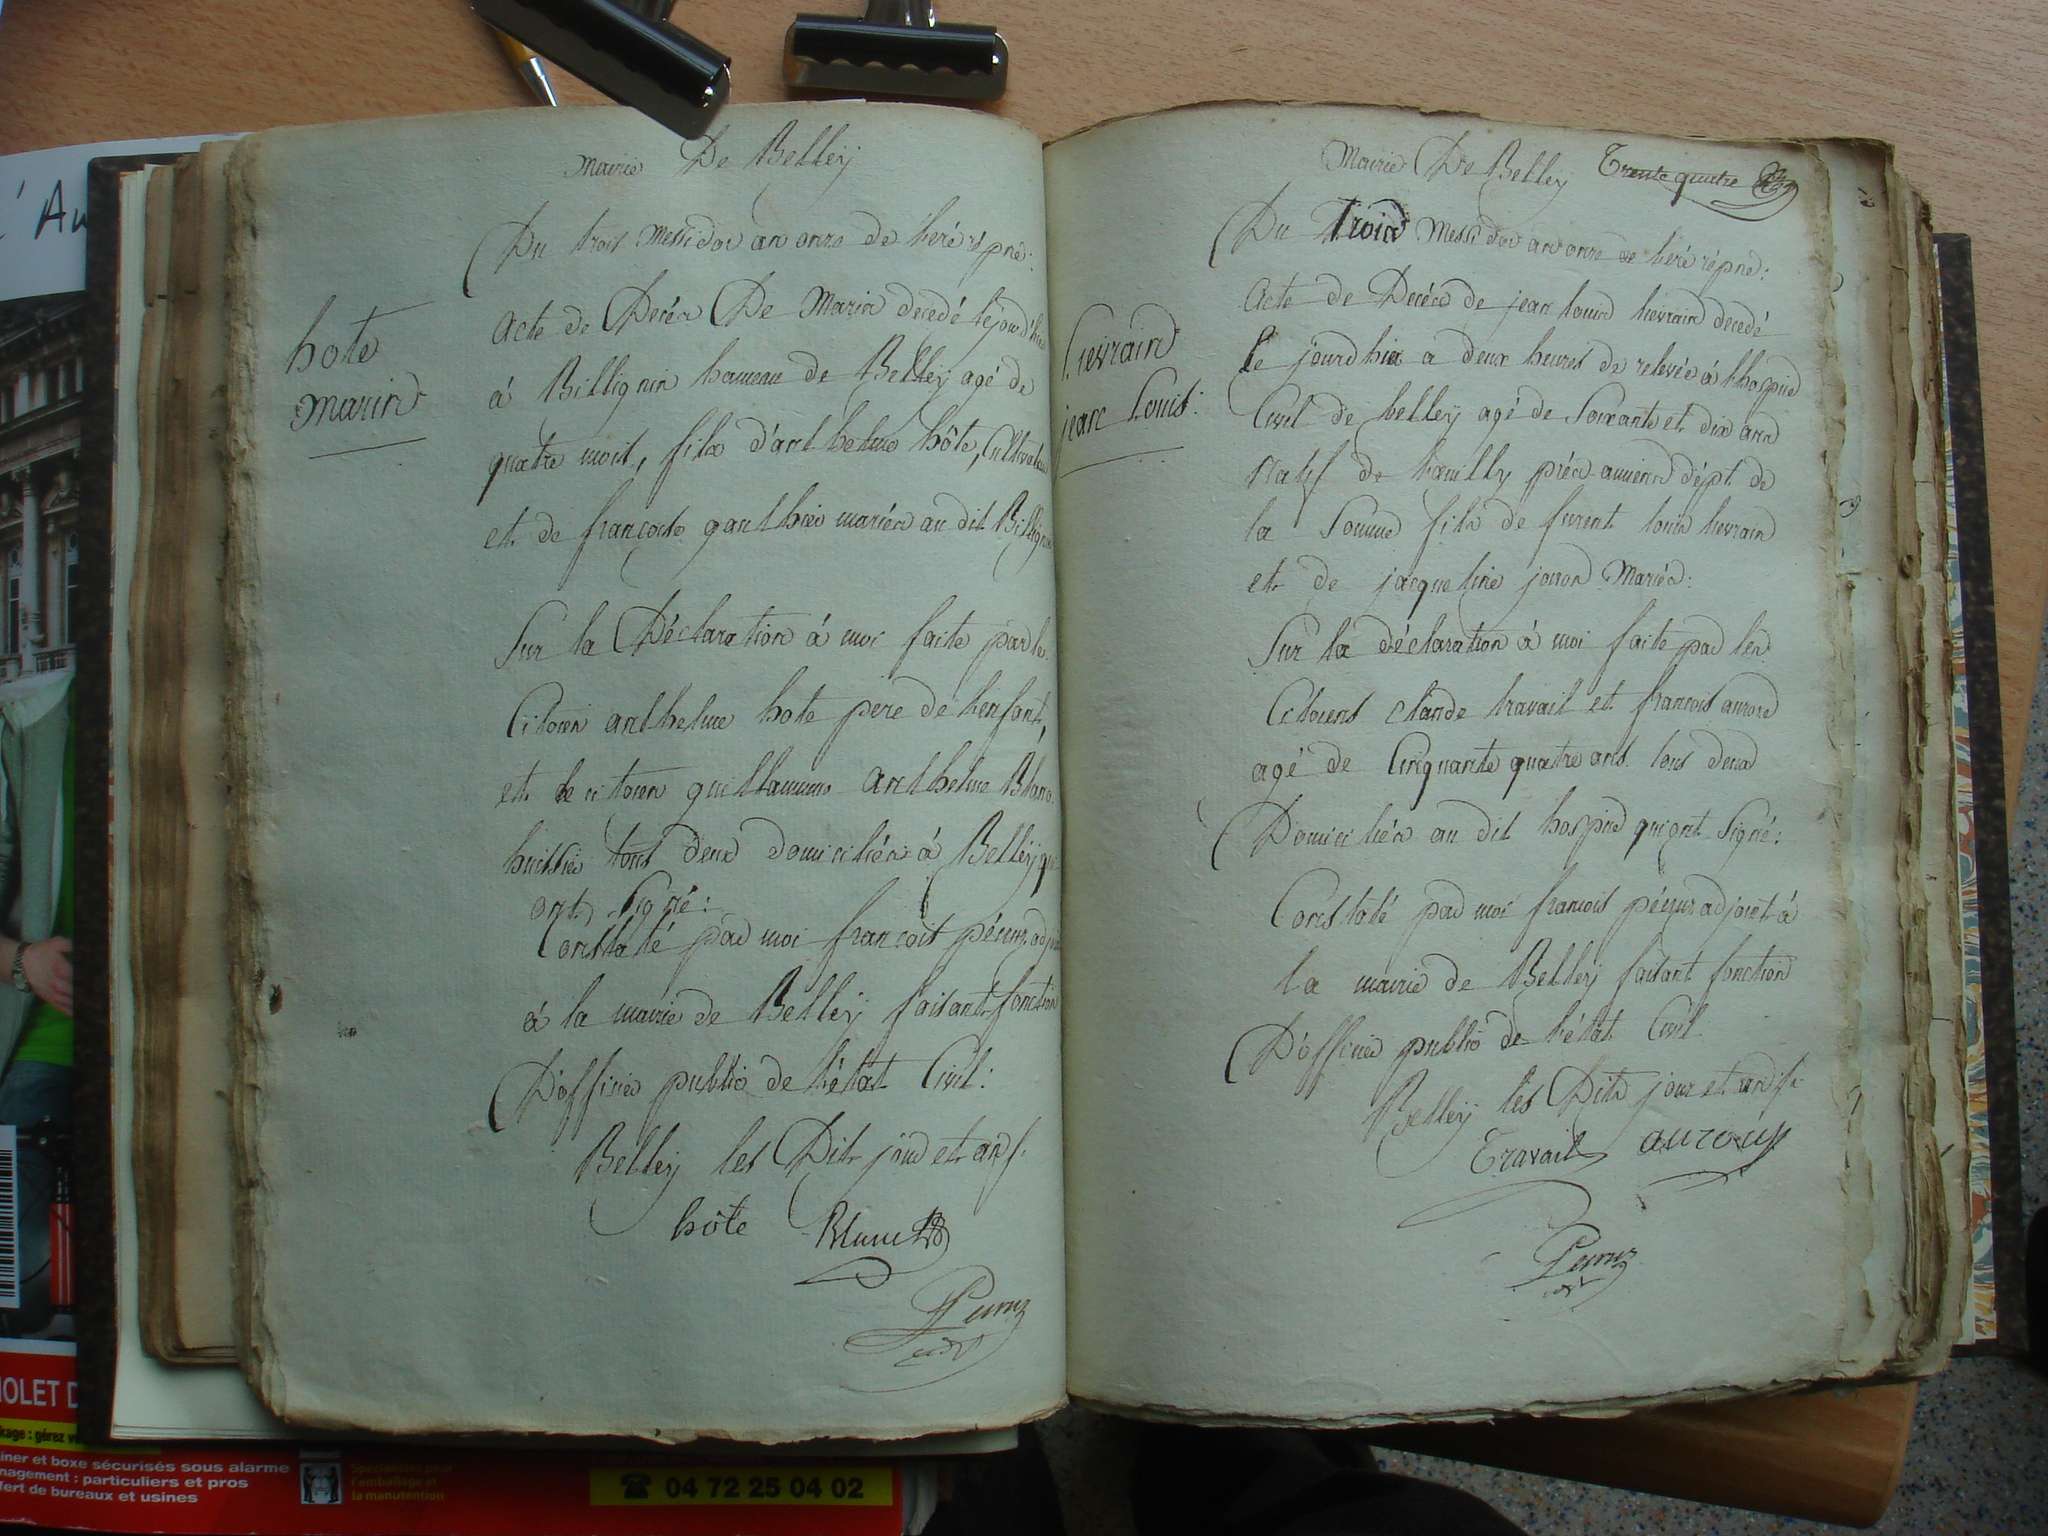 Mairie De Belleÿ
Du trois Messidor an onze de l'ere répne:
hote
marin
acte de Decés De Marin decedé lejourd'hui
á Billignin hameau de Belleÿ agé de
quatre mois, fils d'anthelme hôte, Cultivateur
et de françoise gauthier mariés au dit Billignin
Sur la Déclaration á moi faite par le
Citoien anthelme hote pere de l'enfant,
et le citoien guillaume anthelme Blanc
huissier tous deux domiciliés á Belleÿ qui
ont Signé:
Constaté par moi françois pécuz adjoint
á la mairie de Belleÿ faisant fonction
D'officier public de l'état Civil:
Belleÿ les Dits jour et an
hôte Blanc
Mairie De Belleÿ Trente quatre
Du trois Messidor an onze de l'ere répne:
Lievrain
jean Louis:
acte de Decés de jean louis lievrain decedé
le jourdhui a deux heures de relevée á l'hospice
Civil de belleÿ agé de Soixante et dix ans
natif de près amiens dépt. de
la Somme fils de louis lievrain
et de jacqueline Mariés:
Sur la déclaration á moi faite par les
Citoiens claude travail et francois
agé de Cinquante quatre ans tous deux
Domiciliés au dit hospice qui ont Signé:
Constaté par moi francois pécuz adjoint á
la mairie de Belleÿ faisant fonction
D'officier public de l'état Civil
Belleÿ les Dits jour et an
Travail
É AU
IOLET D
kage : gérez
iner et boxe sécurisés sous alarme
nagement : particuliers et pros
fert de bureaux et usines
Spécialiste pour
l'emballage et
la manutention
☎ 04 72 25 04 02